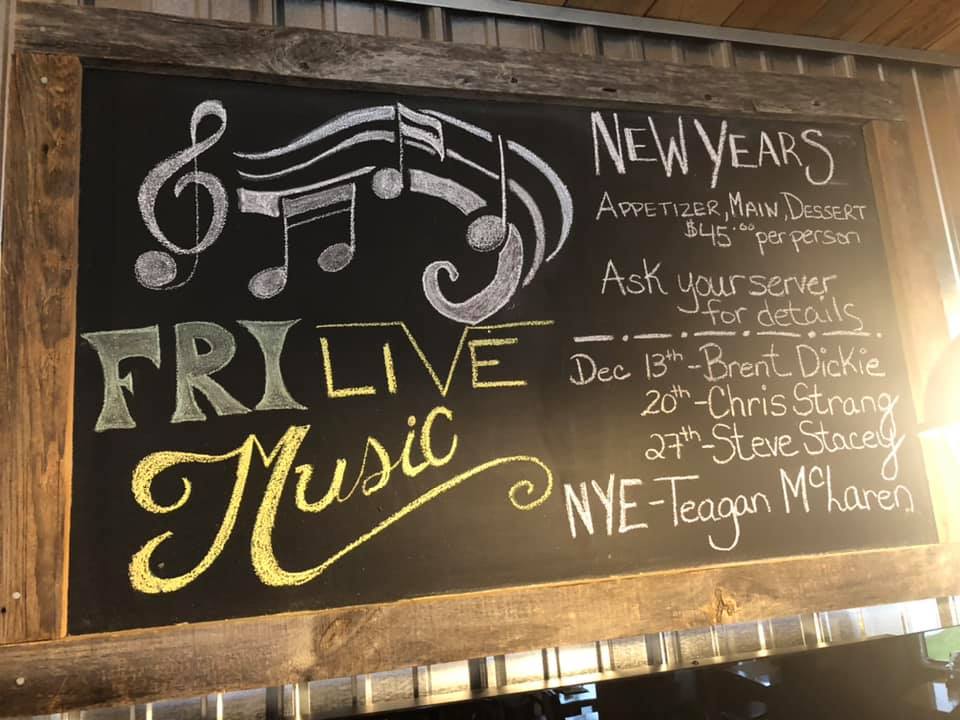 FRI LIVE
Music
NEW YEARS
APPETIZER, MAIN, DESSERT
$45.00 per person
Ask your server
for details
Dec 13th - Brent Dickie
20th - Chris Strang
27th - Steve Stacey
NYE - Teagan McLaren